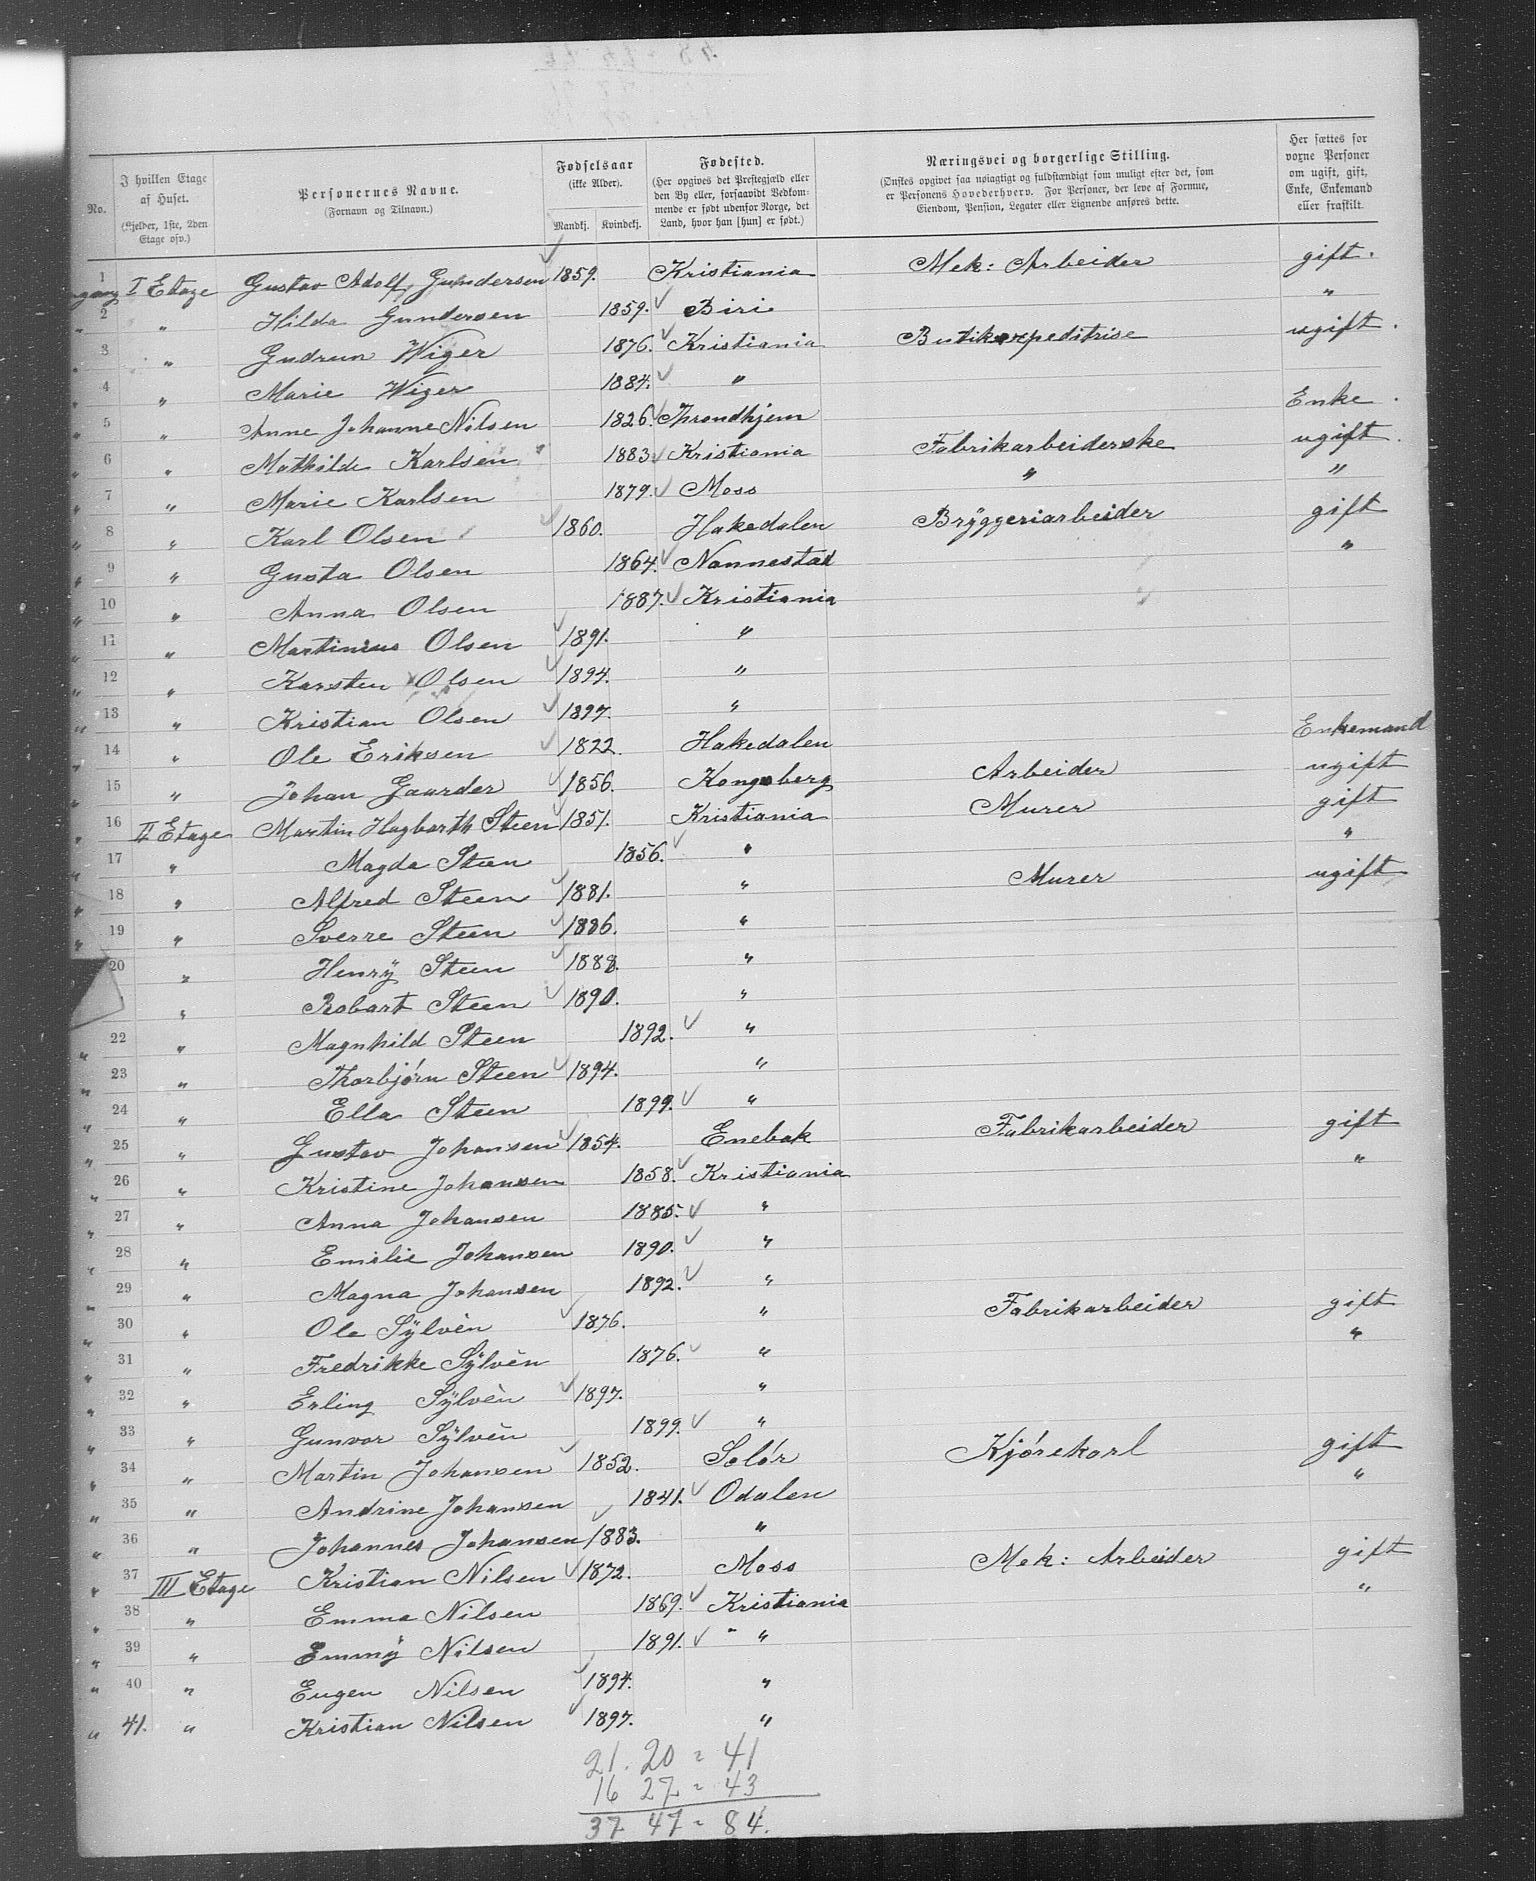 No.
I hvilken Etage af Huset.
(Kjelder, 1ste, 2den Etage osv.)
Personernes Navne.
(Fornavn og Tilnavn.)
Fødselsaar
(ikke Alder).
Mandkj. Kvindekj.
Fødested.
(Her opgives det Prestegjæld eller den By eller, forsaavidt Vedkommende er født udenfor Norge, det Land, hvor han [hun] er født.)
Næringsvei og borgerlige Stilling.
(Ønskes opgivet saa nøiagtigt og fuldstændigt som muligt efter det, som er Personens Hovederhverv. For Personer, der leve af Formue, Eiendom, Pension, Legater eller Lignende anføres dette.
Her sættes for voxne Personer om ugift, gift, Enke, Enkemand eller fraskilt.
1 I Etage Gustav Adolf Gundersen 1859. Kristiania Mek: Arbeider gift.
2 " Hilda Gundersen 1859. Biri "
3 " Gudrun Wiger 1876. Kristiania Butikexpeditrise ugift.
4 " Marie Wiger 1884. "
5 " Anne Johanne Nilsen 1826. Throndhjem Enke.
6 " Mathilde Karlsen 1883. Kristiania Fabrikarbeiderske ugift.
7 " Marie Karlsen 1879. Moss " "
8 " Karl Olsen 1860. Hakedalen Brÿggeriarbeider gift
9 " Gusta Olsen 1864. Nannestad "
10 " Anna Olsen 1887. Kristiania
11 " Martinius Olsen 1891. "
12 " Karsten Olsen 1894. "
13 " Kristian Olsen 1897. "
14 " Ole Eriksen 1822. Hakedalen Enkemand
15 " Johan Gaarder 1856. Kongsberg Arbeider ugift
16 II Etage Martin Hagbarth Steen 1851. Kristiania Murer gift
17 " Magda Steen 1856. " "
18 " Alfred Steen 1881. " Murer ugift
19 " Sverre Steen 1886. "
20 " Henrÿ Steen 1888. "
" Robart Steen 1890. "
22 " Magnhild Steen 1892. "
23 " Thorbjörn Steen 1894. "
24 " Ella Steen 1899. "
25 " Gustav Johansen 1854. Enebak Fabrikarbeider gift
26 " Kristine Johansen 1858. Kristiania "
27 " Anna Johansen 1885. "
28 " Emilie Johansen 1890. "
29 " Magna Johansen 1892. "
30 " Ole Sÿlvèn 1876. " Fabrikarbeider gift
31 " Fredrikke Sÿlvèn 1876. " "
32 " Erling Sÿlvèn 1897. "
33 " Gunvor Sÿlvèn 1899. "
34 " Martin Johansen 1852. Solór Kjórekarl gift
35 " Andrine Johansen 1841. Odalen "
36 " Johannes Johansen 1883. "
37 III Etage Kristian Nilsen 1872. Moss Mek: Arbeider gift
38 " Emma Nilsen 1869. Kristiania "
39 " Emmÿ Nilsen 1891. " "
40 " Eugen Nilsen 1894. "
41. " Kristian Nilsen 1897. "
21. 20 = 41
16 27 = 43
37 47 = 84.